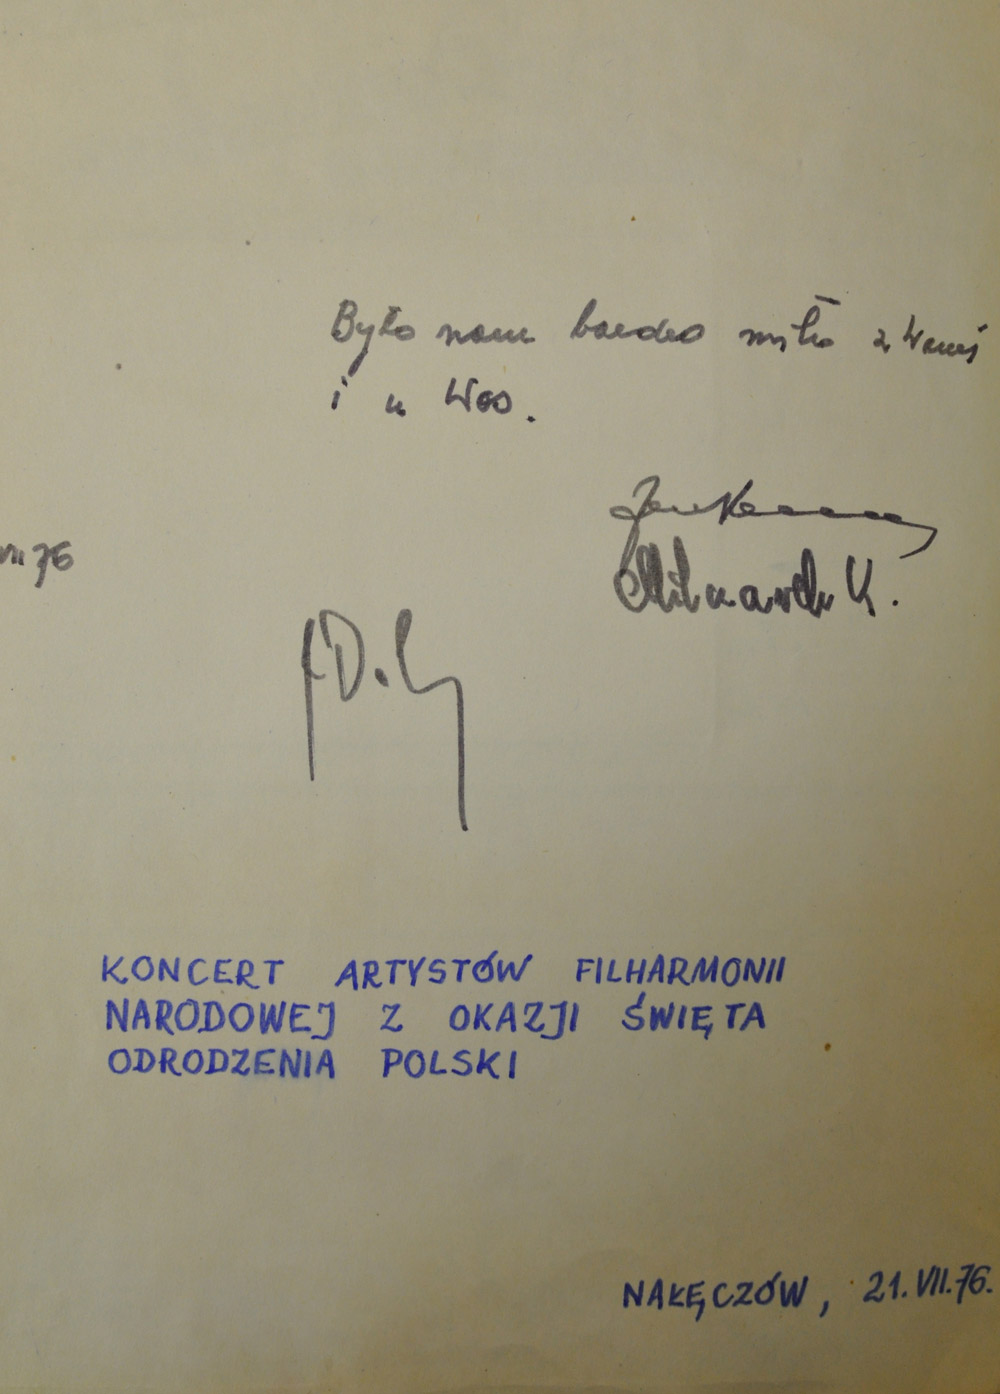 Było nam bardzo miło z Wami
i u Was.
VII 76
KONCERT ARTYSTÓW FILHARMONII
NARODOWEJ Z OKAZJI ŚWIĘTA
ODRODZENIA POLSKI
NAŁĘCZÓW, 21.VII.76.